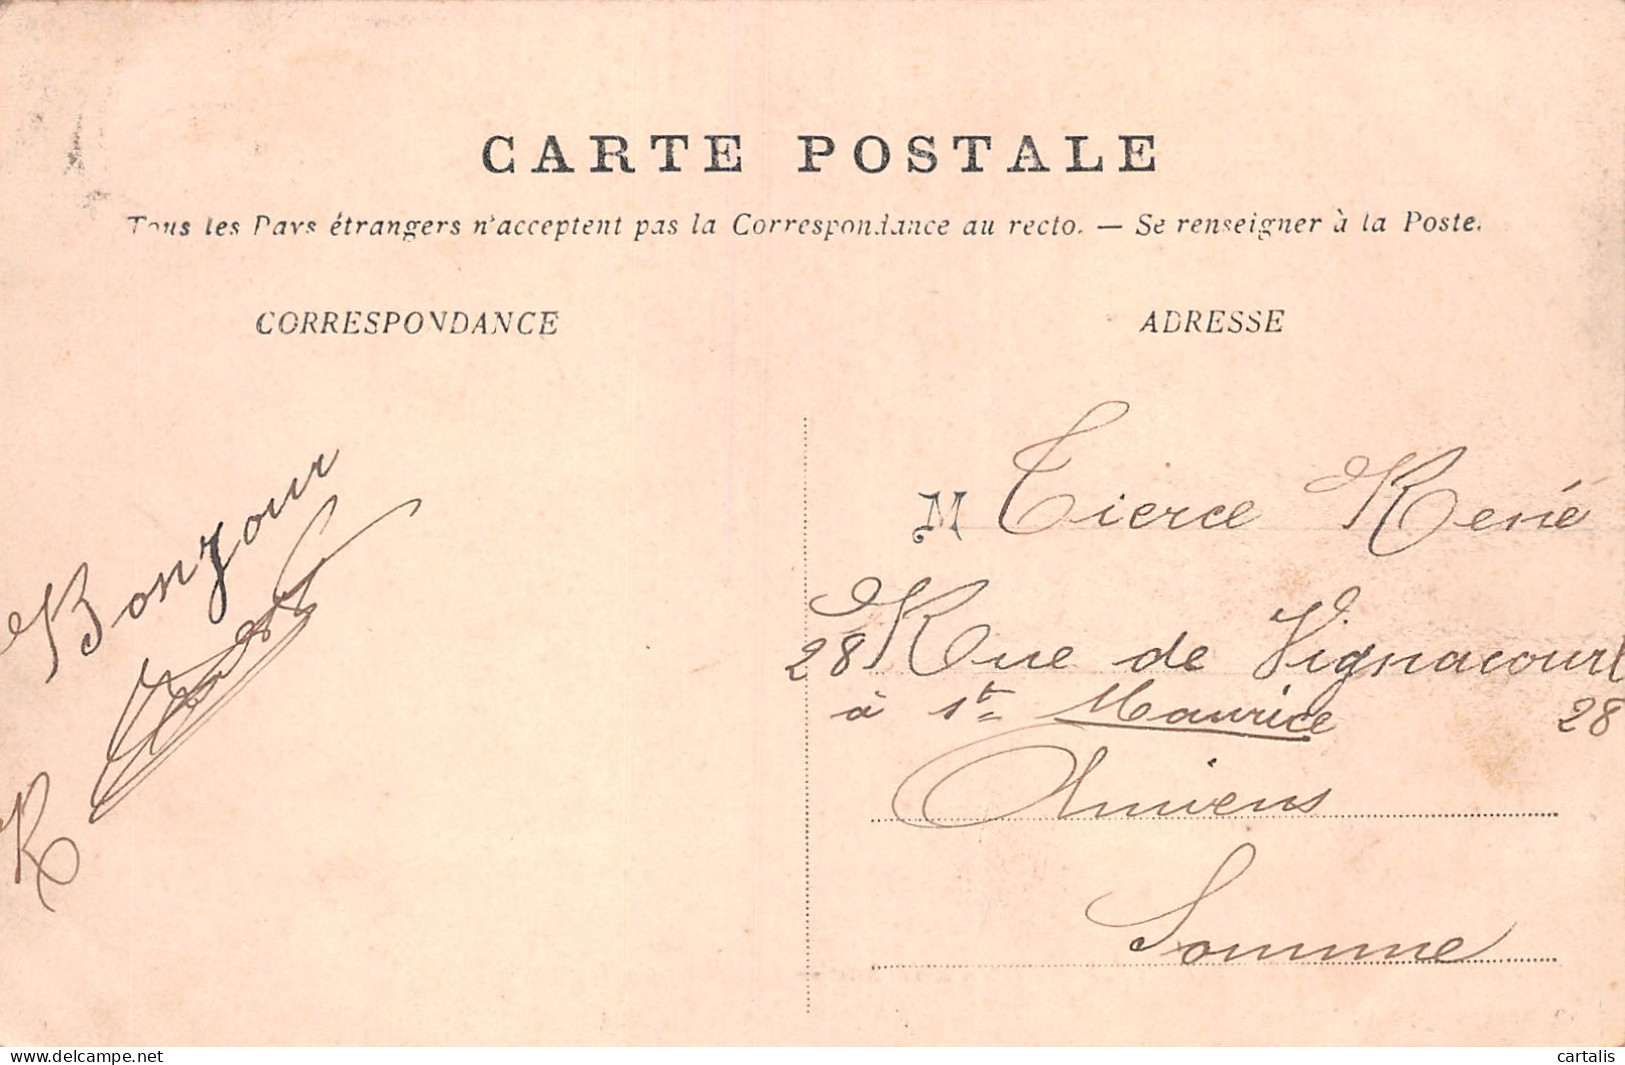 CARTE POSTALE
Tous les Pays étrangers n'acceptent pas la Correspondance au recto. — Se renseigner à la Poste.
CORRESPONDANCE
Bonjour
R
ADRESSE
M Tierce René
28 Rue de Vignacourt
à St Maurice 28
Amiens
Somme
www.delcampe.net
cartalis